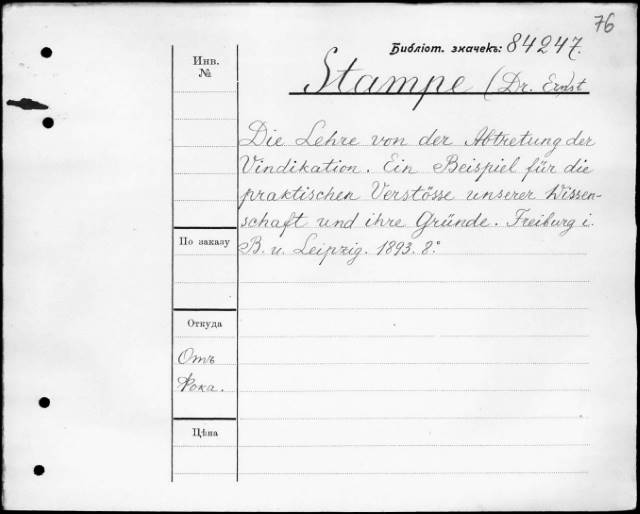 76
Библіот. значекъ: 84247.
Инв.
№
Stampe (Dr. Ernst
Die Lehre von der Abtretung der
Vindikation. Ein Beispiel für die
praktischen Verstösse unserer Wissen-
schaft und ihre Gründe. Freiburg i.
По заказу
B. u. Leipzig. 1893. 8.°
Откуда
Отъ
Рока.
Цѣна